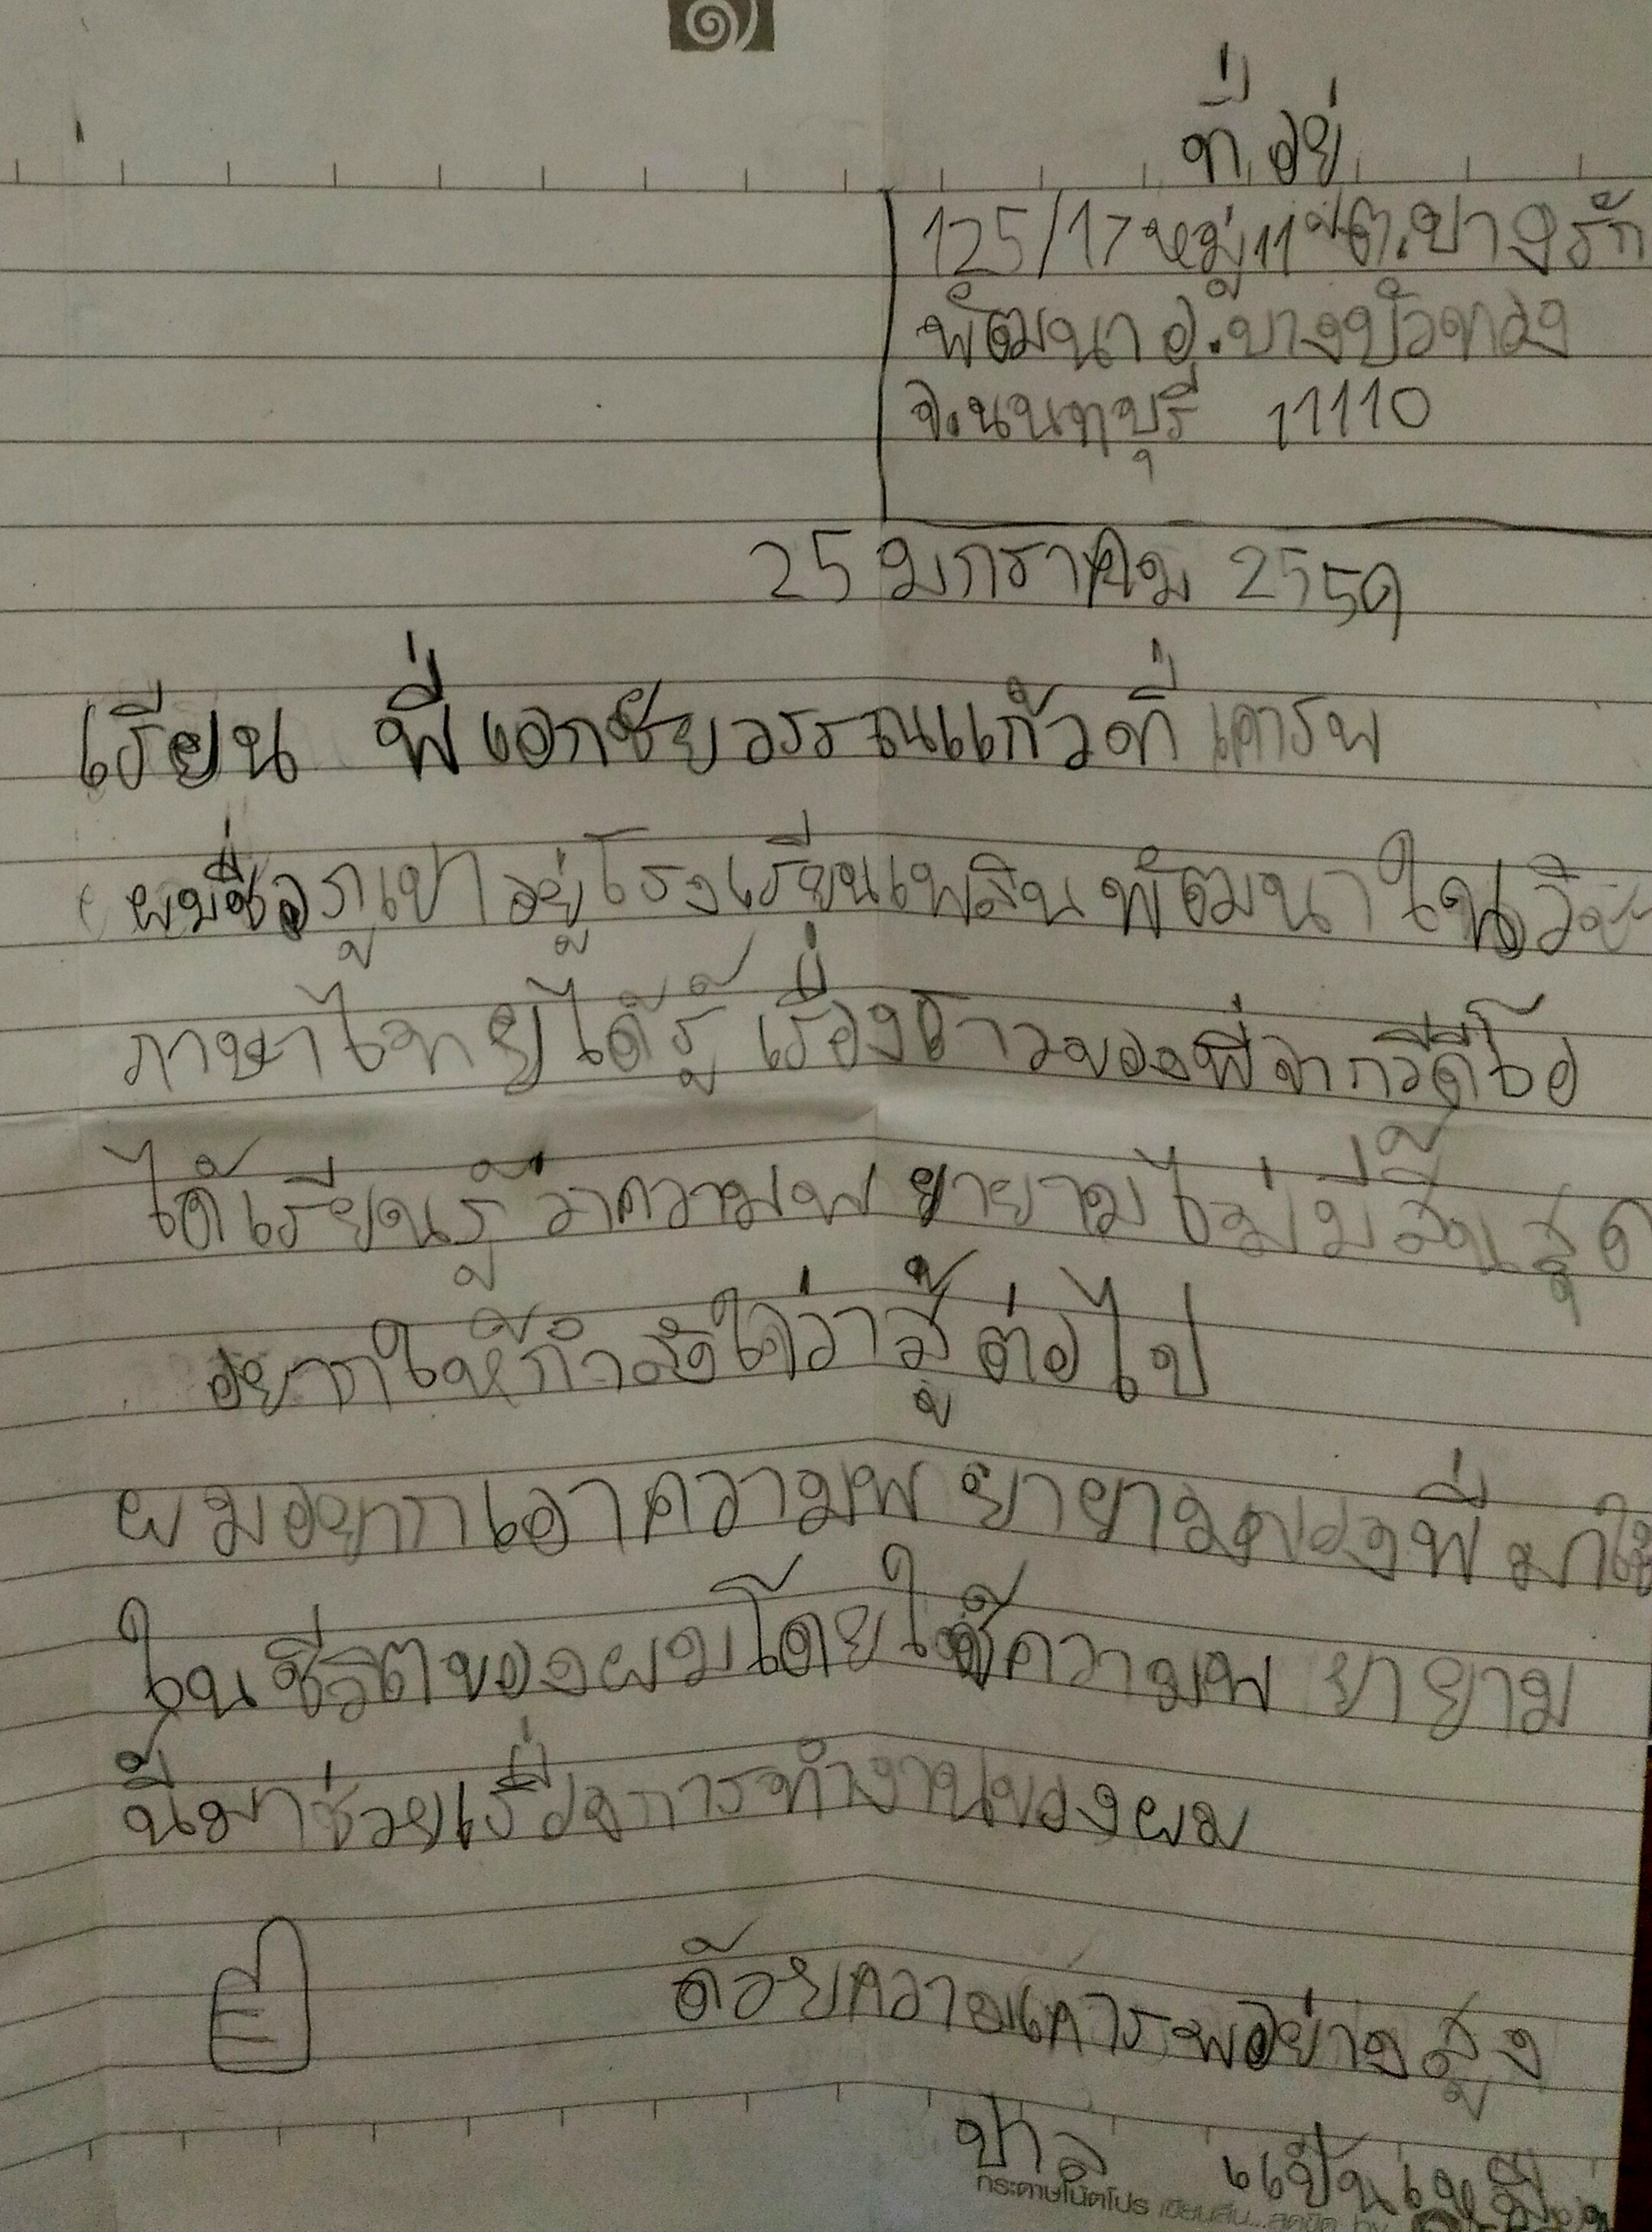 ที่อยู่
125/17 หมู่ 11 ต.บางรัก
พัฒนา อ.บางบัวทอง
จ.นนทบุรี 11110
25 มกราคม 2559
เรียน พี่เอกชัยวรรณแก้วที่เคารพ
ผมชื่อภูเขาอยู่โรงเรียนเพลินพัฒนาในวิชา
ภาษาไทยได้รู้เรื่องราวของพี่จากวีดีโอ
ได้เรียนรู้ว่าความพยายามไม่มีสิ้นสุด
อยากให้กำลังใจว่าสู้ต่อไป
ผมอยากเอาความพยายามของพี่มาใช้
ในชีวิตของผมโดยใช้ความพยายาม
นี้มาช่วยเรื่องการทำงานของผม
ด้วยความเคารพอย่างสูง
กระดาษโน้ตโปร เขียนลื่น...